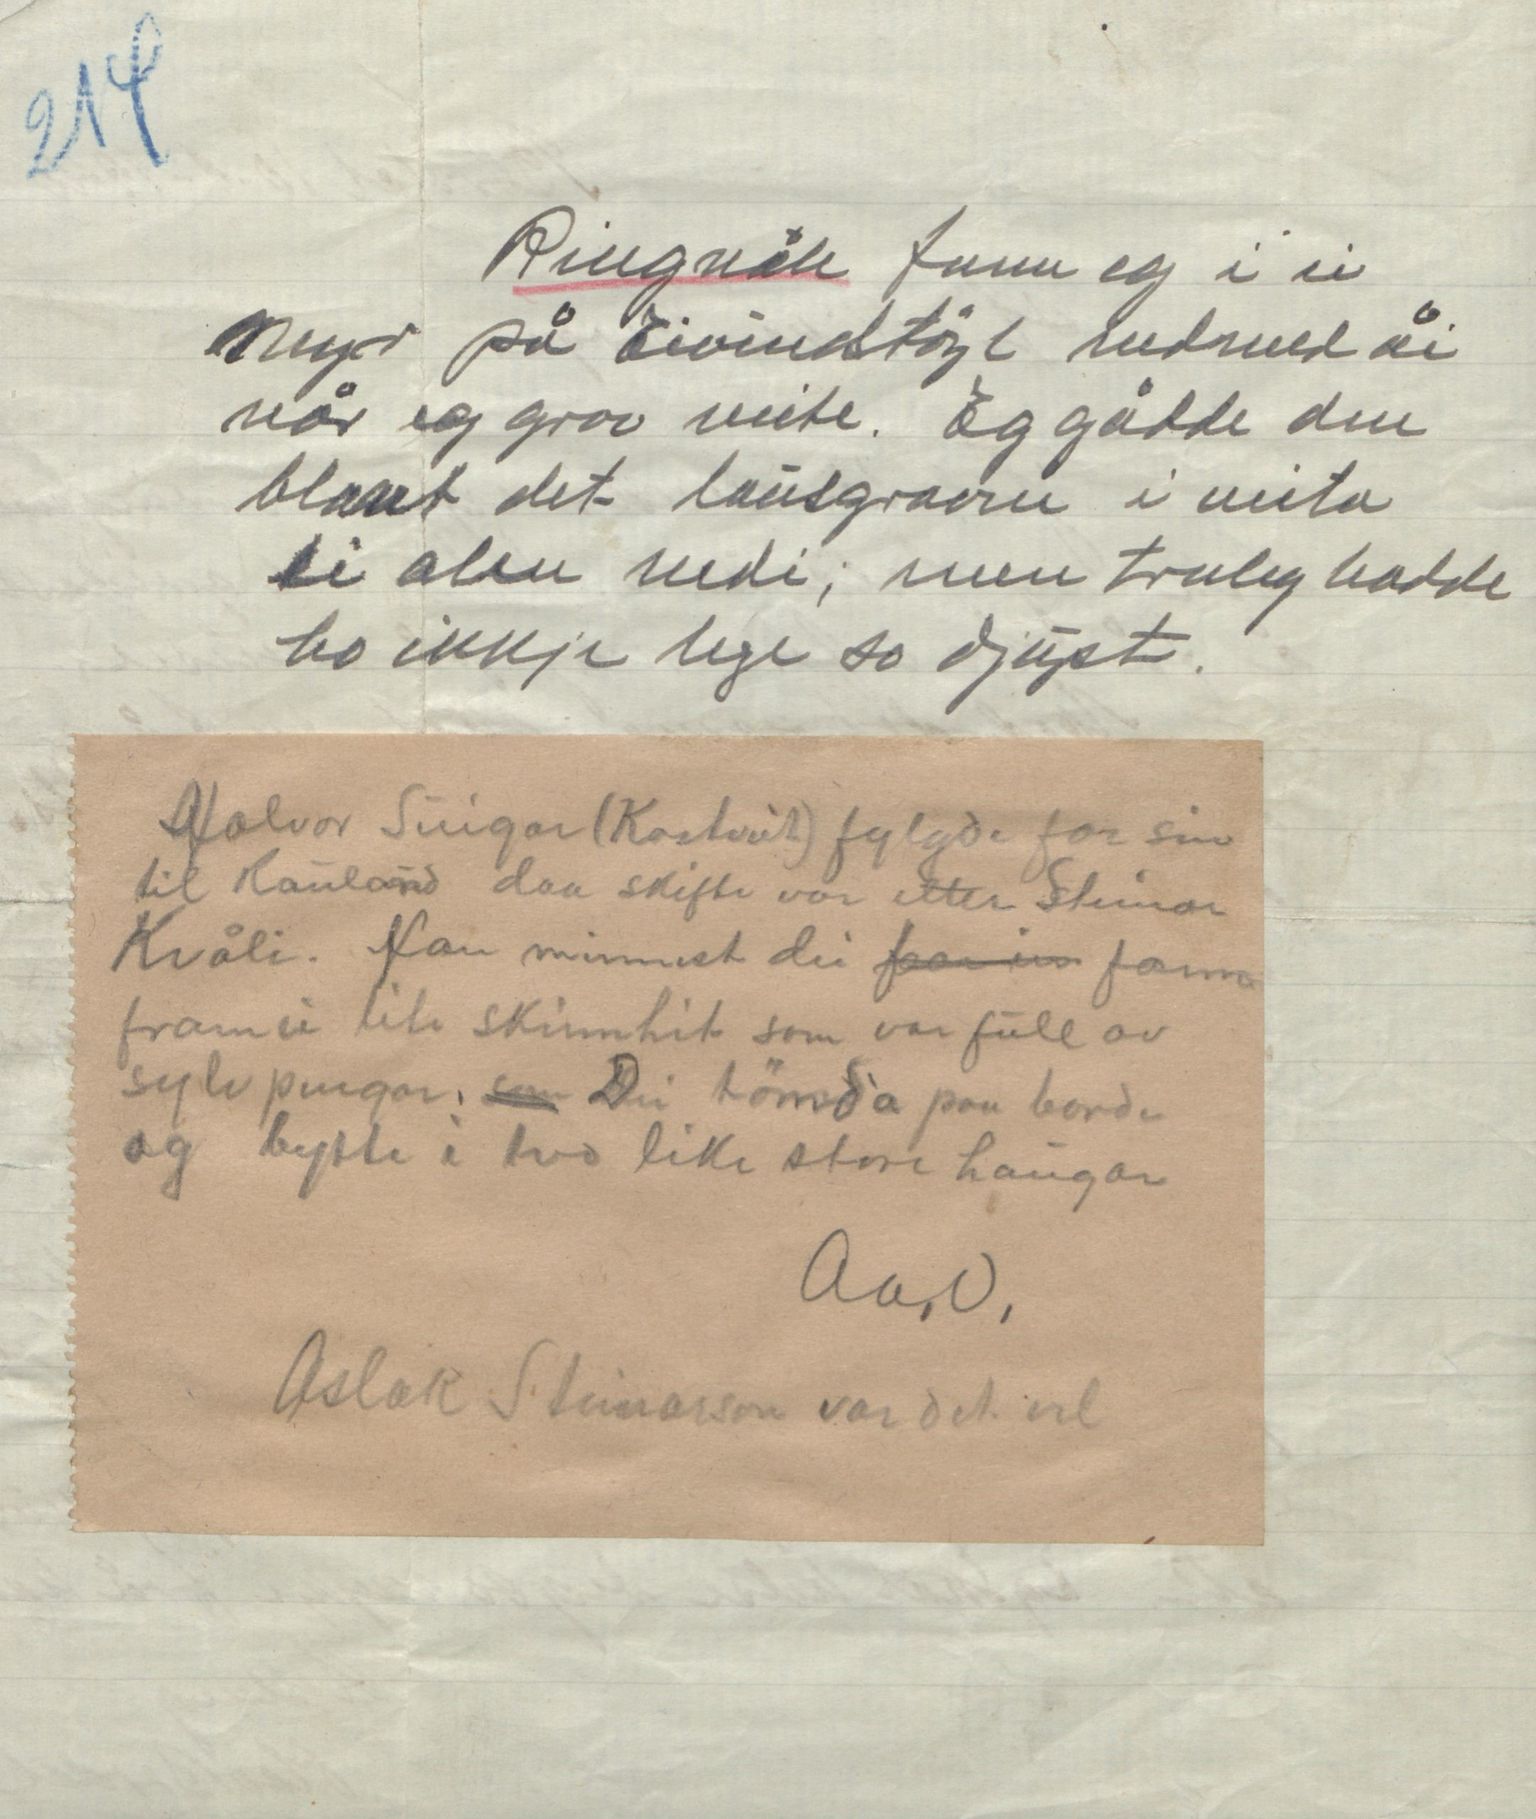 214
Ringnåle funn eg i ei
myr på Eivindstöyl nedmed åi
når eg grov veite. Eg gådde den
blant det lausgravne i veita
ei alen nedi; men truleg hadde
ho ikkje lege so djupt.
Halvor Suigar (Kostveit) fylgde far sin
til Rauland daa skifte var etter Steinar
Kvåli. Han minnest dei fann
fram ei lite skinnhit som var full av
sylvpengar. Dei tömda paa borde
og bytte i tvo like store haugar
Aa. V.
Aslak Steinarson var det vel